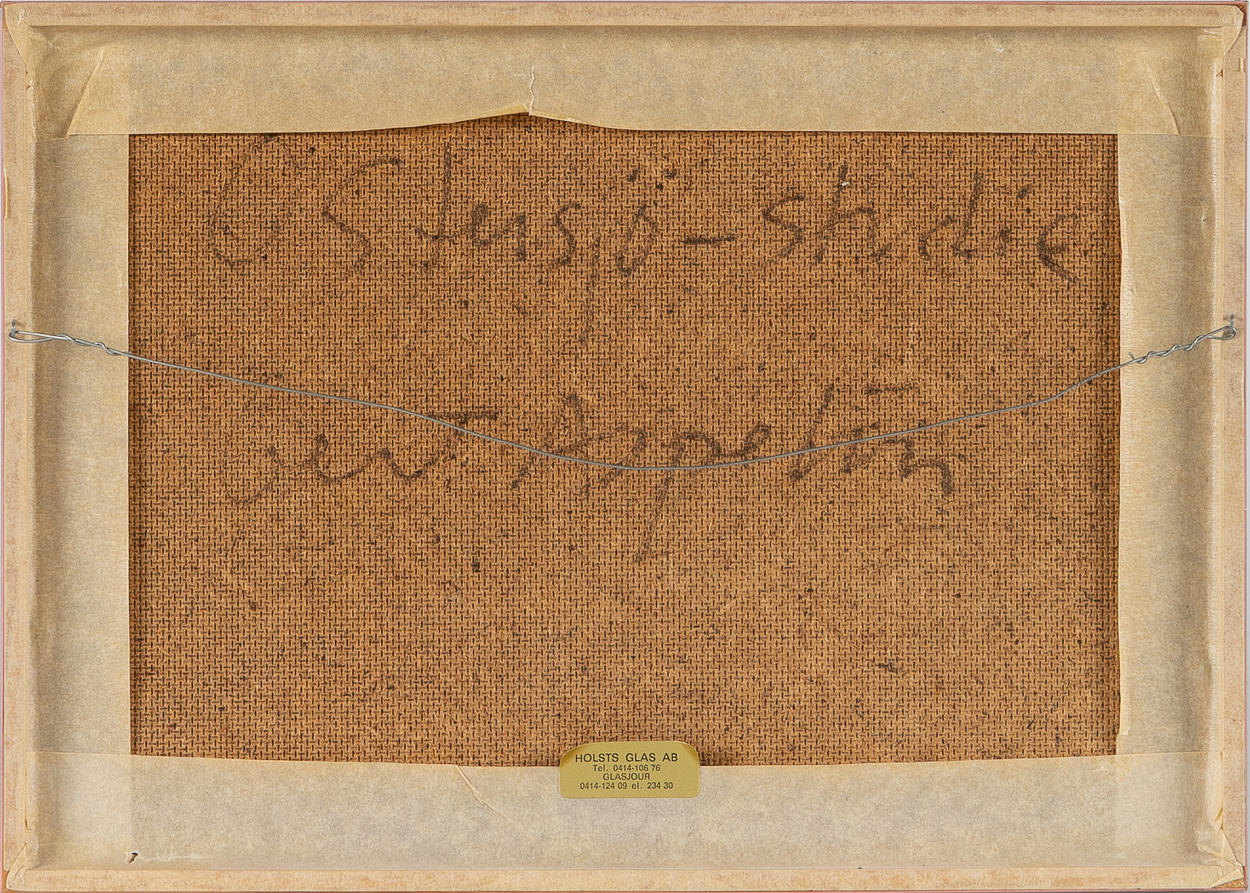 Östersjö-studie
Gert Appelin
HOLSTS GLAS AB
Tel. 0414-106 76
GLASJOUR
0414-124 09 el. 234 30